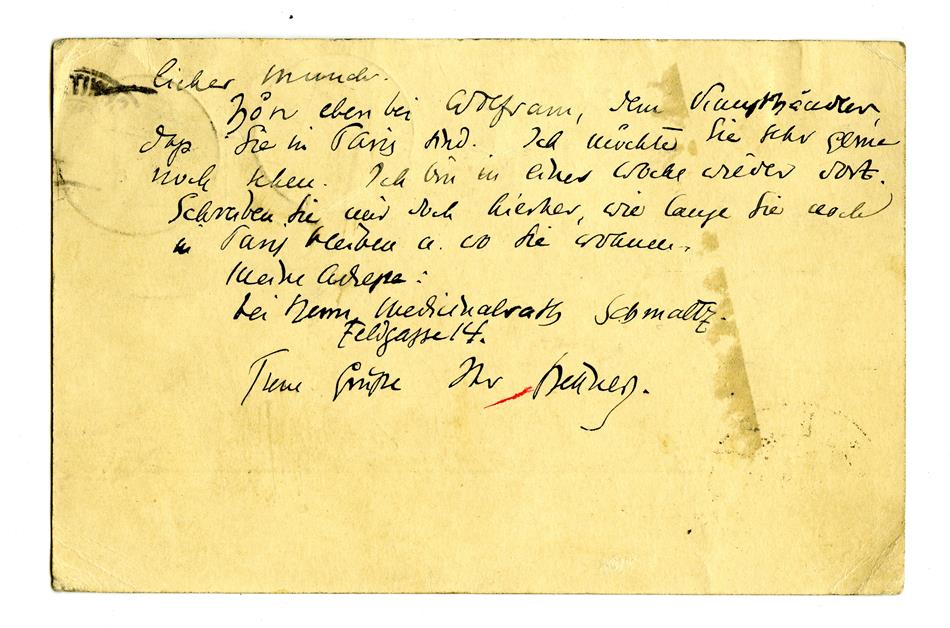 Lieber Munch.
Höre eben bei Wolfram, dem Kunsthändler,
daß Sie in Paris sind. Ich möchte Sie sehr gerne
noch sehen. Ich bin in einer Woche wieder dort.
Schreiben Sie mir doch hierher, wie lange Sie noch
in Paris bleiben u. wo Sie wohnen.
Meine Adresse:
bei Herrn Medicinalrath Schmaltz.
Feldgasse 14.
Treue Grüße Ihr